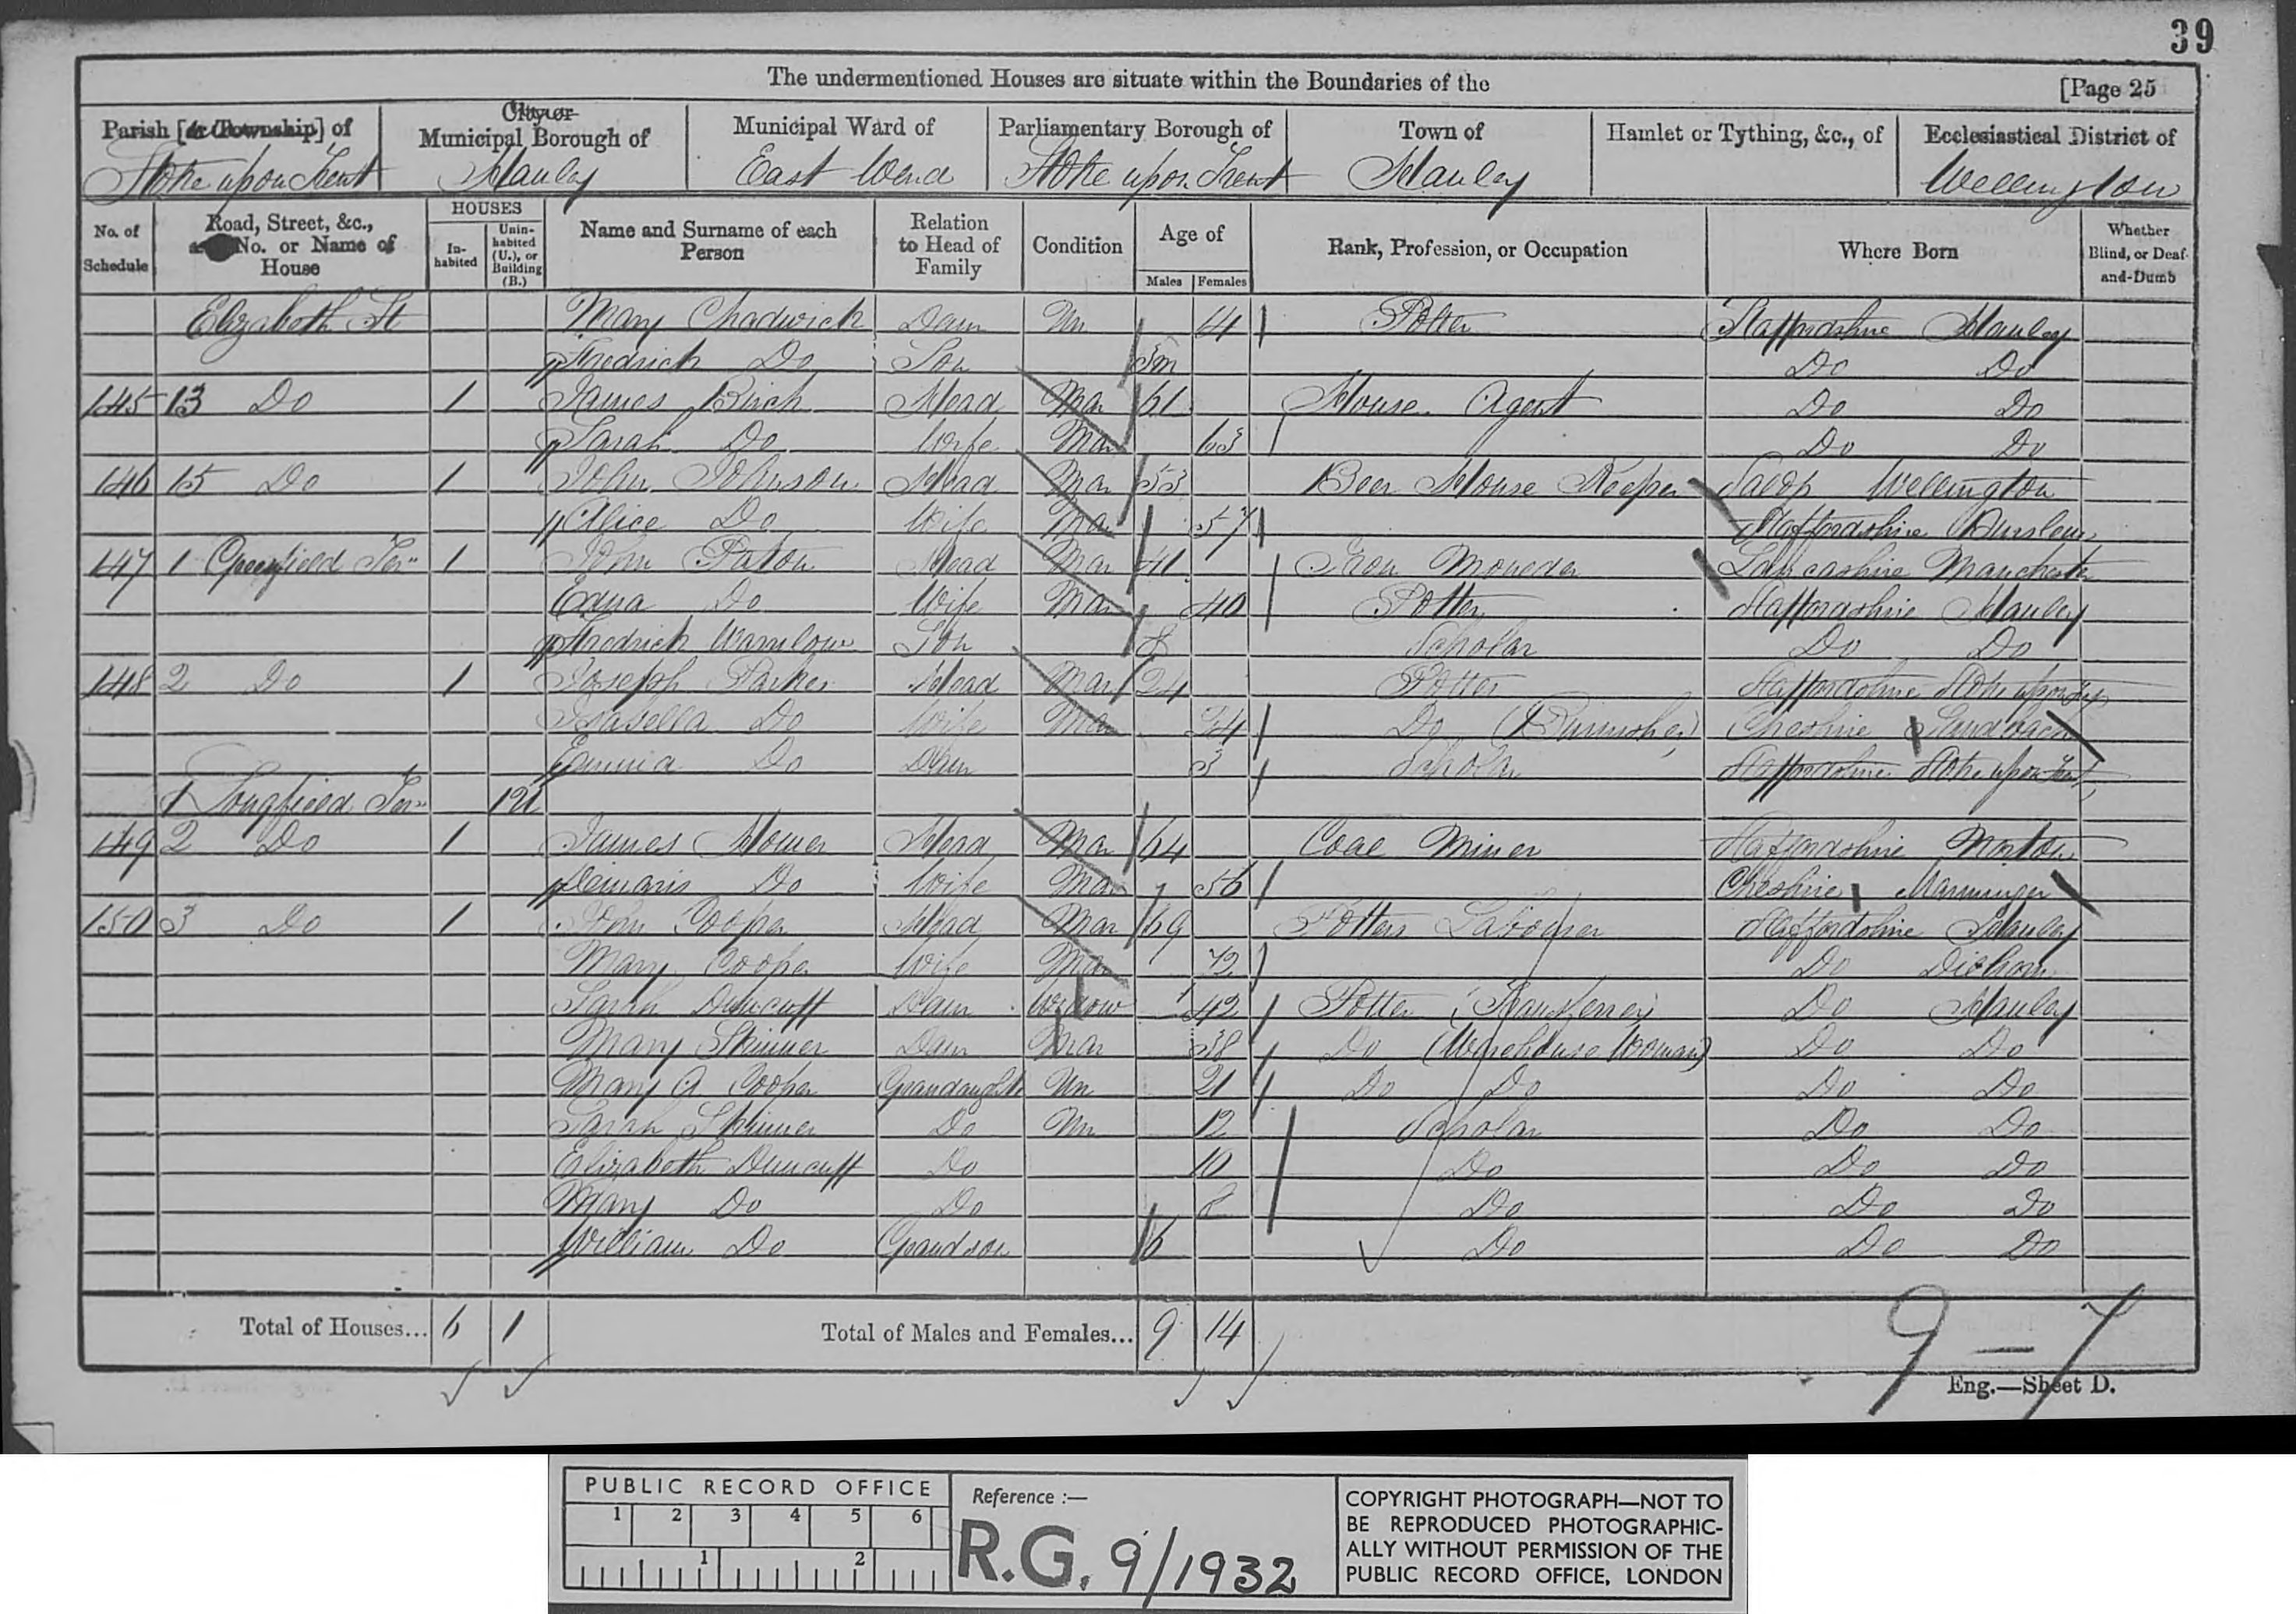 39
The undermentioned Houses are situate within the Boundaries of the [Page 25
Parish [or Township] of City or Municipal Borough of Municipal Ward of Parliamentary Borough of Town of Hamlet or Tything, &c., of Ecclesiastical District of
Stoke upon Trent Hanley East Ward Stoke upon Trent Hanley Wellington
No. of Schedule Road, Street, &c., and No. or Name of House HOUSES Inhabited Uninhabited (U.), or Building (B.) Name and Surname of each Person Relation to Head of Family Condition Age of Males Females Rank, Profession, or Occupation Where Born Whether Blind, or Deaf-and-Dumb
Elizabeth St Mary Chadwick Daur Un Potter Staffordshire Hanley
Fredrick Do Son 3m Do Do
145 13 Do 1 James Birch Head Mar 61 House Agent Do Do
Sarah Do Wife Mar 63 Do Do
146 15 Do 1 John Johnson Head Mar 53 Beer House Keeper Salop Wellington
Alice Do Wife Mar 57 Staffordshire Burslem
147 1 Greenfield Ter 1 John Paton Head Mar 41 Iron Moueder Lancashire Manchester
Edna Do Wife Mar 40 Potter Staffordshire Hanley
Fredrick Warmlow Son 8 Scholar Do Do
148 2 Do 1 Joseph Parker Head Mar 24 Potter Staffordshire Stoke upon
Isabella Do Wife Mar 24 Do (Burnisher) Cheshire Sandbach
Emma Do Daur 3 Scholar Staffordshire Stoke upon Trent
1 Longfield Ter 1U
149 2 Do 1 James Hower Head Mar 64 Coal Miner Staffordshire Norton
Demaris Do Wife Mar 56 Cheshire
150 3 Do 1 John Cooper Head Mar 69 Potters Labourer Staffordshire Hanley
Mary Cooper Wife Mar 72 Do Dilhorn
Sarah Duncuff Daur Widow 42 Potter (Transferrer) Do Hanley
Mary Skinner Daur Mar 38 Do (Warehouse Woman) Do Do
Mary A Cooper Grandaught Un 21 Do Do Do Do
Sarah Skinner Do Un 12 Scholar Do Do
Elizabeth Duncuff Do 10 Do Do Do
Mary Do Do 8 Do Do Do
William Do Grandson 6 Do Do Do
Total of Houses... 6 1 Total of Males and Females... 9 14
9 — 7
Eng.—Sheet D.
PUBLIC RECORD OFFICE
1 2 3 4 5 6
1 2
Reference :—
R.G. 9/1932
COPYRIGHT PHOTOGRAPH—NOT TO
BE REPRODUCED PHOTOGRAPHIC-
ALLY WITHOUT PERMISSION OF THE
PUBLIC RECORD OFFICE, LONDON